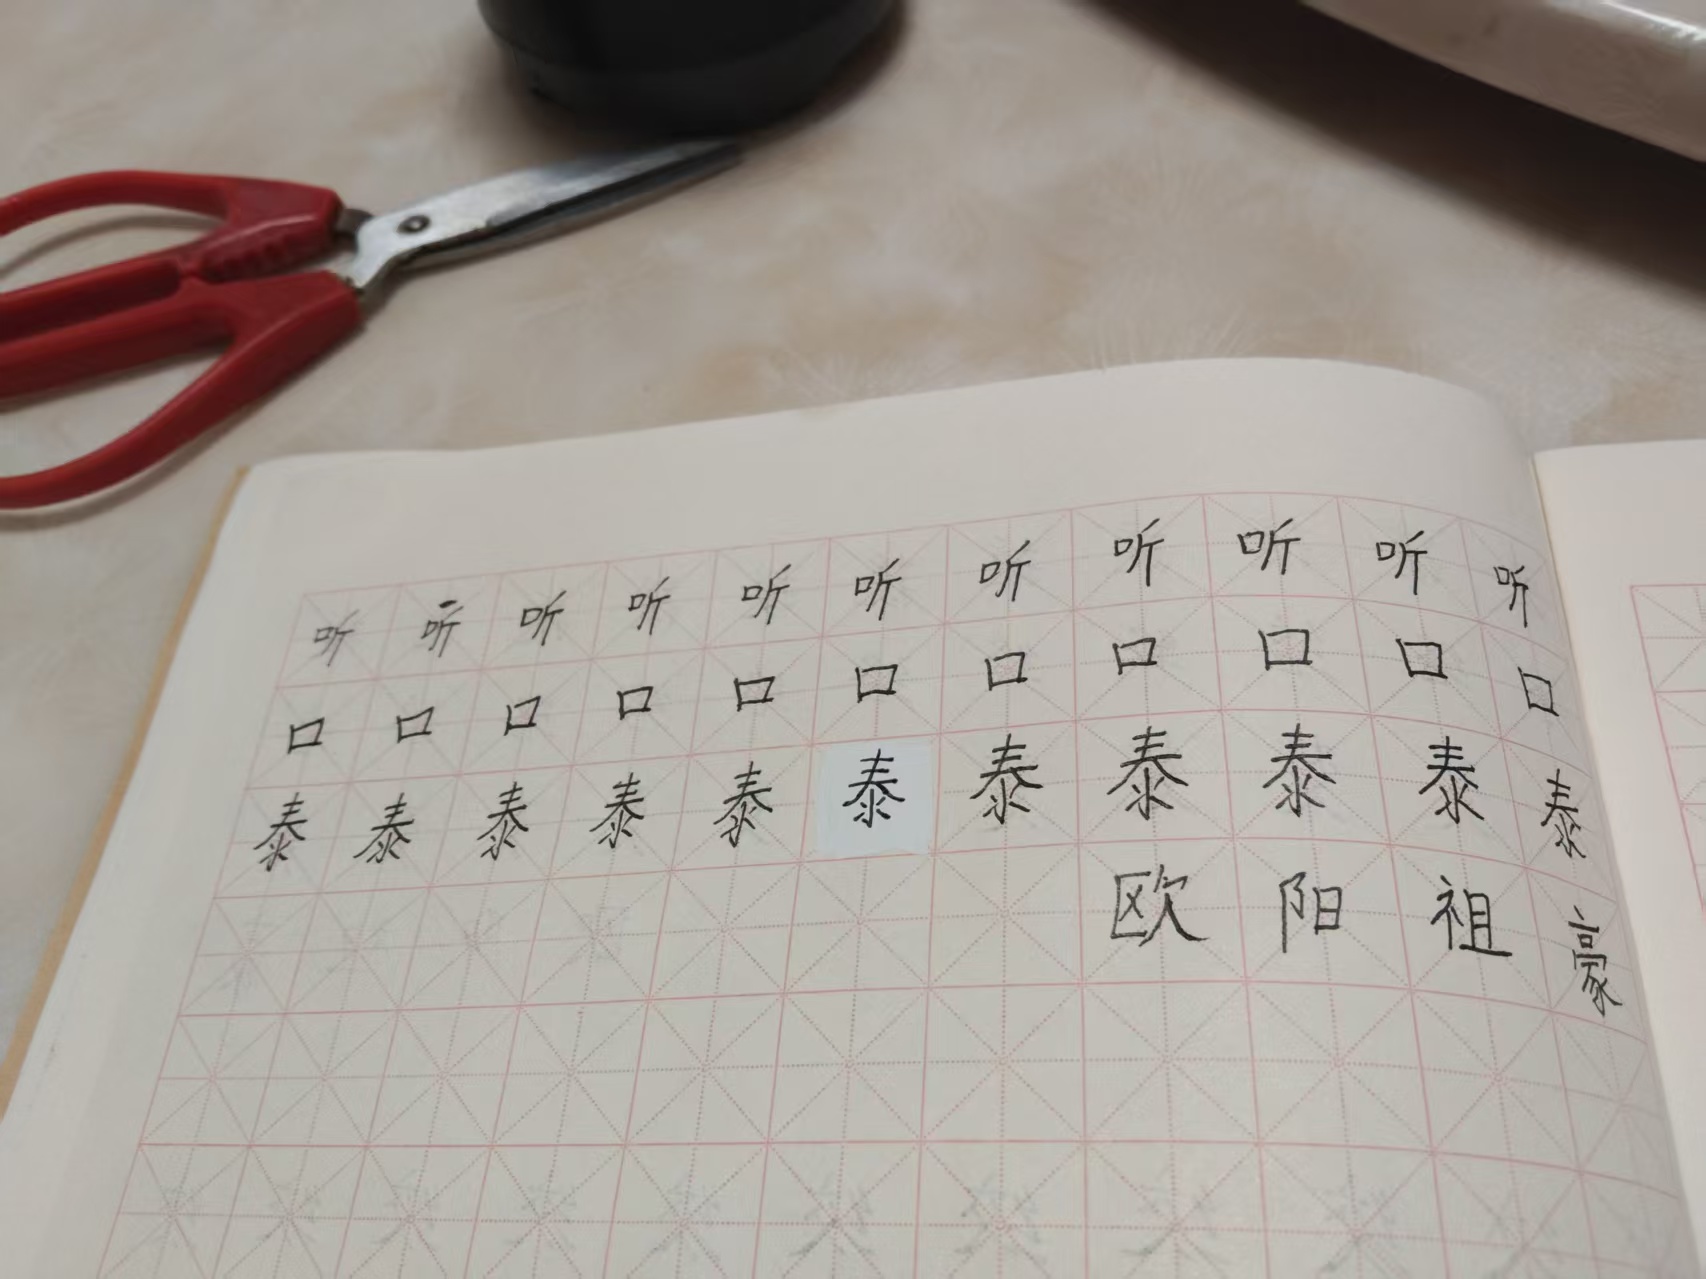 听听听听听听听听听听听
口口口口口口口口口口口
泰泰泰泰泰泰泰泰泰泰泰
欧阳祖豪